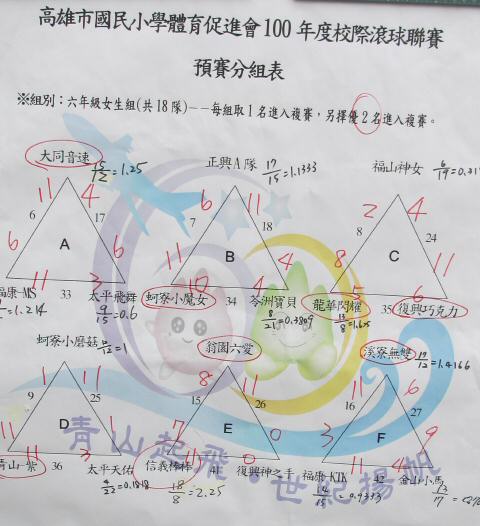 高雄市國民小學體育促進會100年度校際滾球聯賽
預賽分組表
※組別：六年級女生組(共18隊)--每組取1名進入複賽，另擇優2名進入複賽。
大同音速 15/12=1.25
正興A隊 17/15=1.1333
福山神女 6/19=
11 4
6 11
2 4
6 17
7 18
8 24
A
B
C
6 6
11 4
8 11
11 3
10 4
5 6
福康-MS 33 太平飛舞
蚵寮小魔女 34 苓洲寶貝
龍華閃耀 35 復興巧克力
1.214
9/15=0.6
8/21=0.3809
13/8=1.625
蚵寮小蘑菇 /12=1
翁園六愛
溪寮無雙 17/12=1.4166
1 11
8 11
11 6
9 25
15 26
16 27
D
E
F
11 1
7 0
3 9
11 3
11 0
11 4
青山一紫 36 太平天佑
信義棒棒 41 復興神之手
福康-KIK 42 金山小馬
4/22=0.1818
18/8=2.25
14/15=0.9333
青山起飛·世紀揚帆